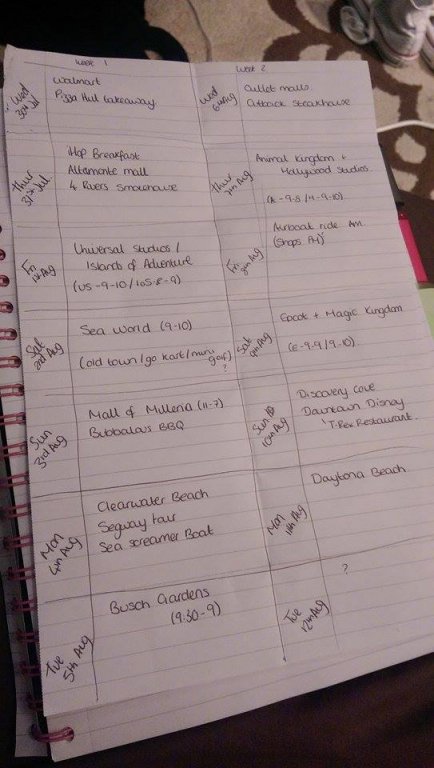 Week 1
Wed 30th Jul
Walmart
Pizza Hut takeaway
Thur 31st Jul
iHop Breakfast
Altamonte mall
4 Rivers Smokehouse
Fri 1st Aug
Universal Studios /
Islands of Adventure
(US -9-10 / IOS-8-9)
Sat 2nd Aug
Sea World (9-10)
(old town/go kart/mini golf)
?
Sun 3rd Aug
Mall of Millenia (11-7)
Bubbalous BBQ
Mon 4th Aug
Clearwater Beach
Segway tour
Sea Screamer Boat
Tue 5th Aug
Busch Gardens
(9:30-9)
Week 2
Wed 6th Aug
Outlet malls
Outback Steakhouse
Thur 7th Aug
Animal Kingdom +
Hollywood Studios
Fri 8th Aug
Airboat ride AM
(Shops PM)
Sat 9th Aug
Epcot + Magic Kingdom
(E-9-9/9-10)
Sun 10th Aug
Discovery Cove
Downtown Disney
T-Rex Restaurant.
Mon 11th Aug
Daytona Beach
Tue 12th Aug
?